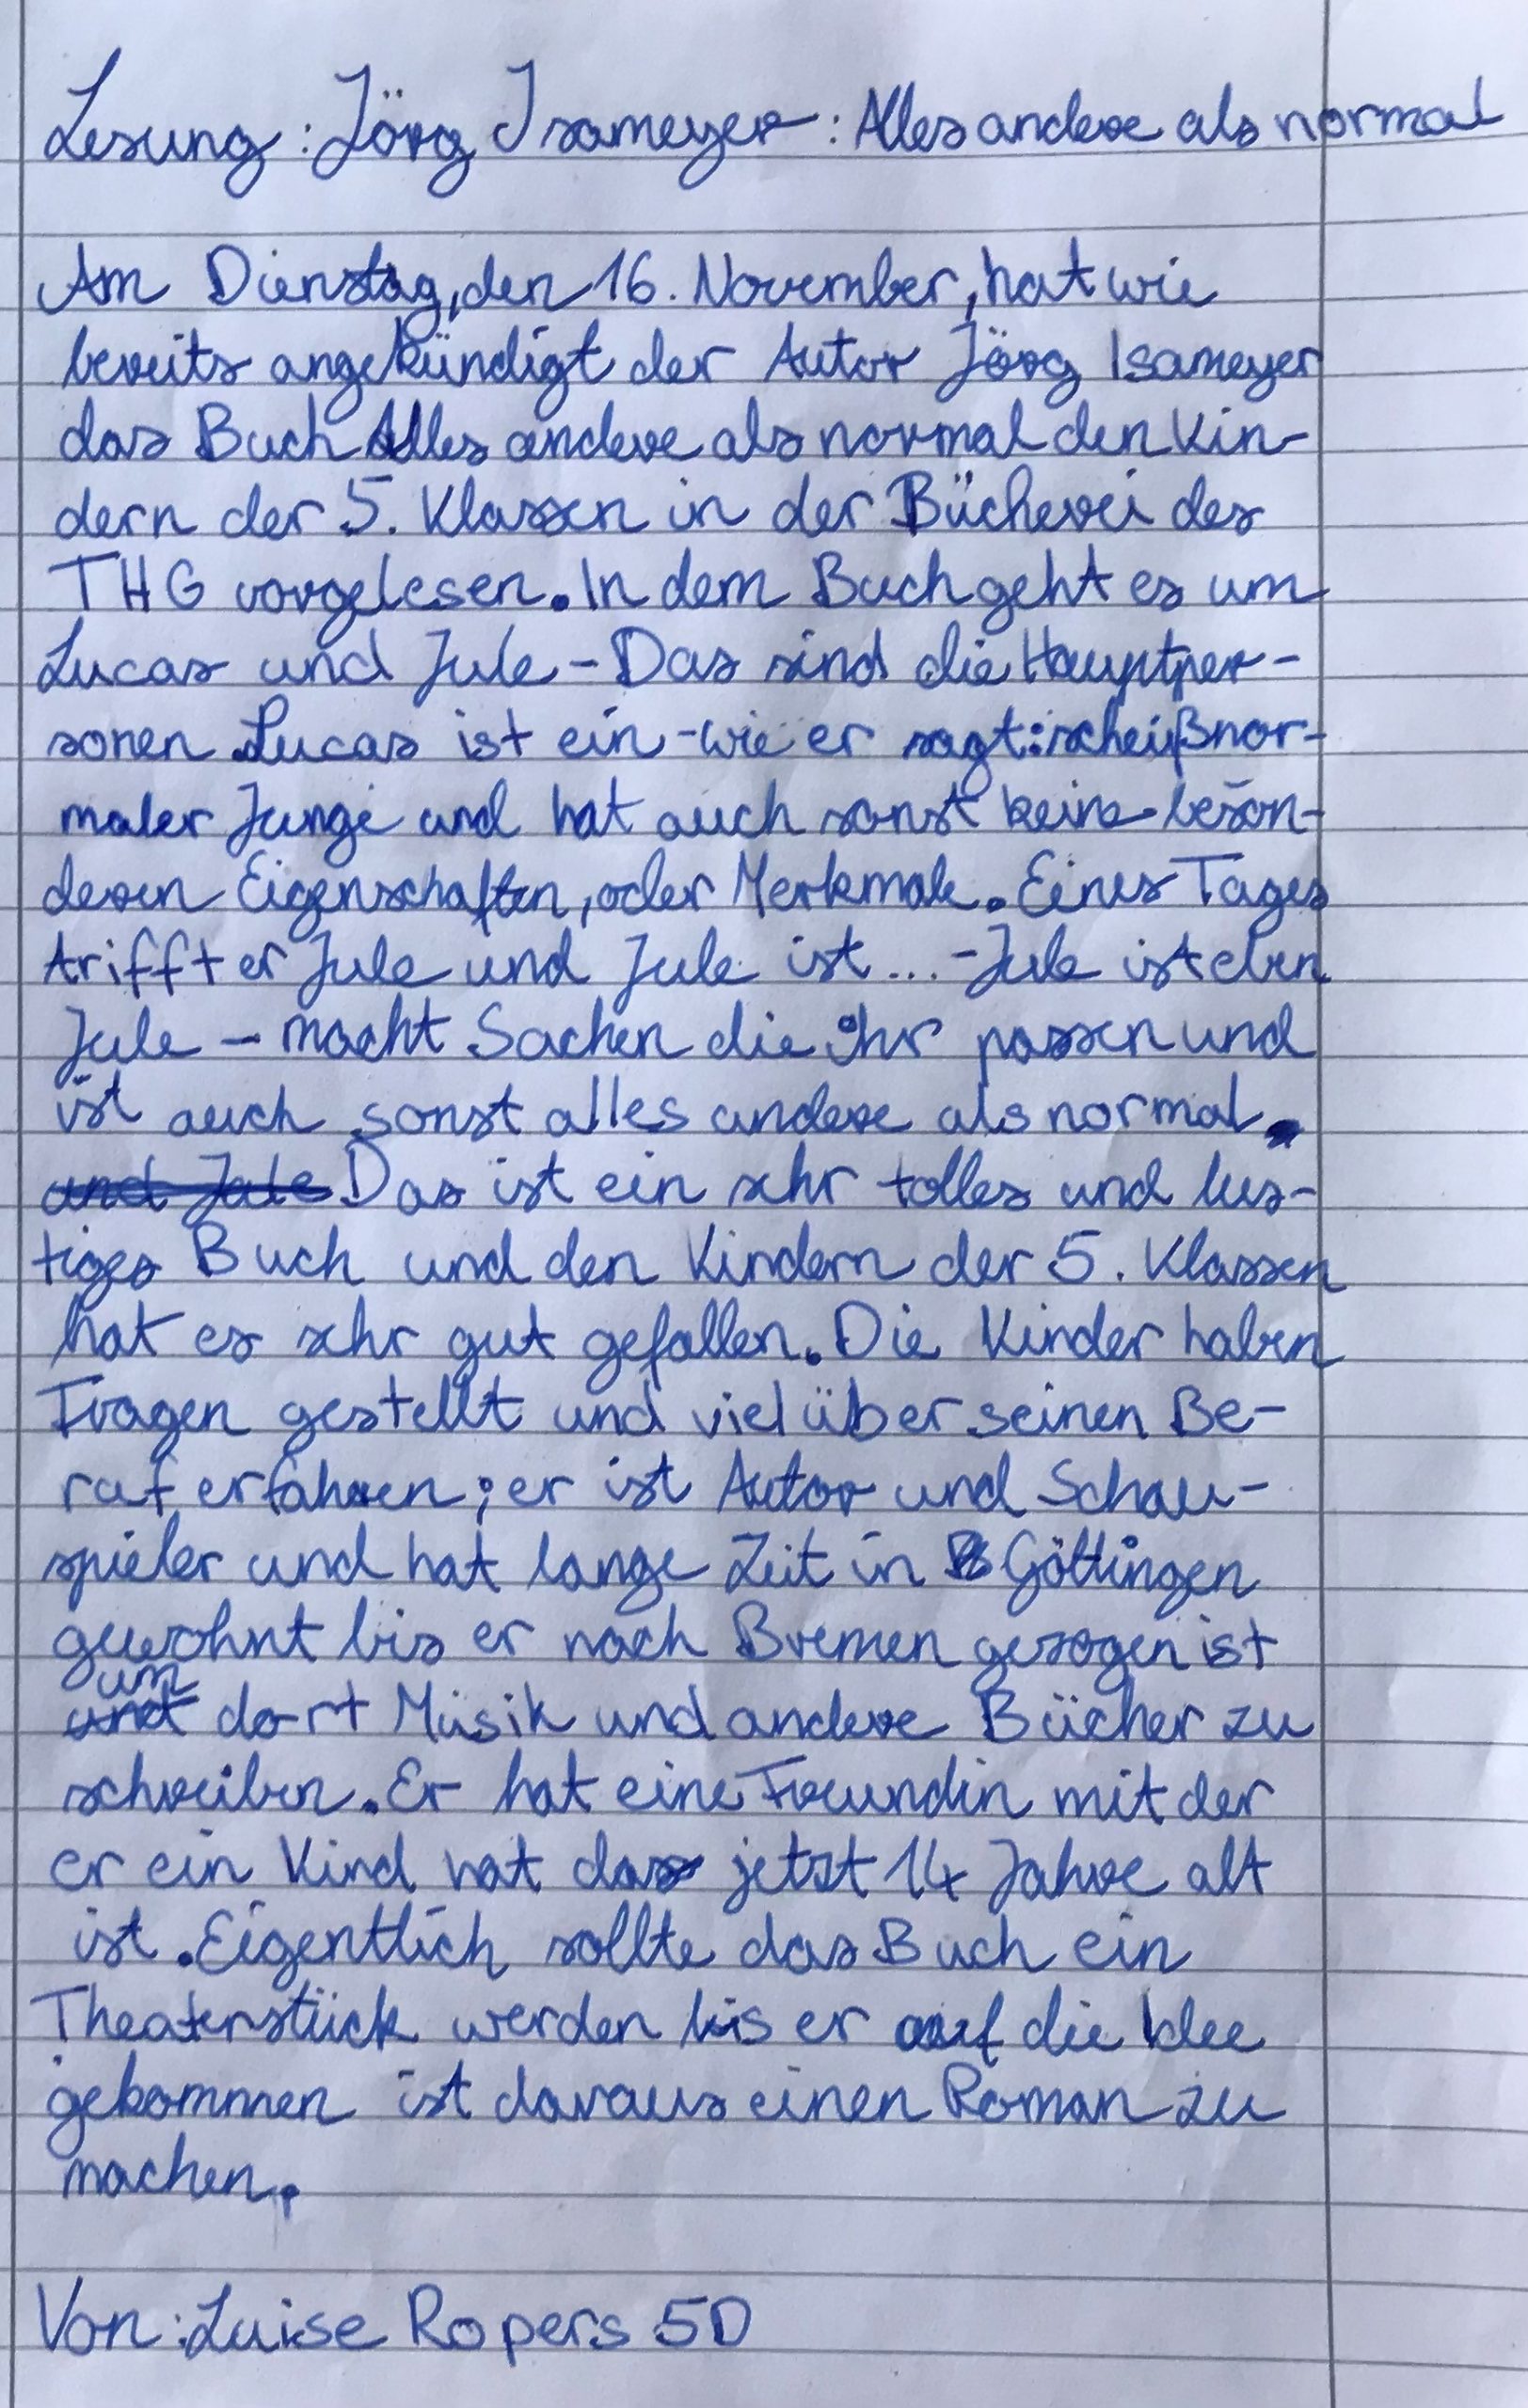 Lesung: Jörg Isameyer: Alles andere als normal
Am Dienstag, den 16. November, hat wie
bereits angekündigt der Autor Jörg Isameyer
das Buch Alles andere als normal den Kin-
dern der 5. Klassen in der Bücherei des
THG vorgelesen. In dem Buch geht es um
Lucas und Jule - Das sind die Hauptper-
sonen. Lucas ist ein - wie er sagt: scheißnor-
maler Junge und hat auch sonst keine beson-
deren Eigenschaften, oder Merkmale. Eines Tages
trifft er Jule und Jule ist ... - Jule ist eben
Jule - macht Sachen die ihr passen und
ist auch sonst alles andere als normal.
und Jule Das ist ein sehr tolles und lus-
tiges Buch und den Kindern der 5. Klassen
hat es sehr gut gefallen. Die Kinder haben
Fragen gestellt und viel über seinen Be-
ruf erfahren; er ist Autor und Schau-
spieler und hat lange Zeit in Göttingen
gewohnt bis er nach Bremen gezogen ist
um
und dort Musik und andere Bücher zu
schreiben. Er hat eine Freundin mit der
er ein Kind hat das jetzt 14 Jahre alt
ist. Eigentlich sollte das Buch ein
Theaterstück werden bis er auf die Idee
gekommen ist daraus einen Roman zu
machen.
Von: Luise Ropers 5D